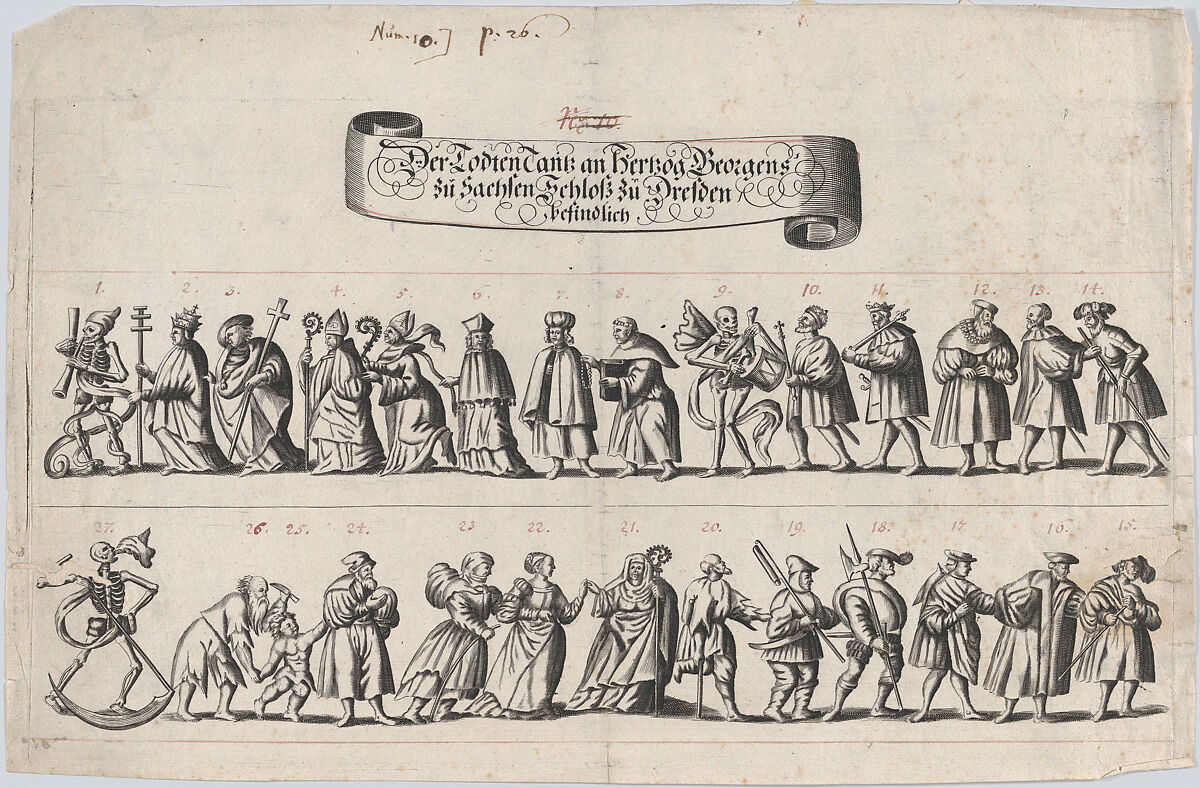 Num. 10.] p. 26.
No. 10.
Der Todten Tantz an Hertzog Georgens
zů Sachsen Schloß zů Dresden
befindlich
1. 2. 3. 4. 5. 6. 7. 8. 9. 10. 11. 12. 13. 14.
27. 26. 25. 24. 23 22. 21. 20. 19. 18. 17. 16. 15.